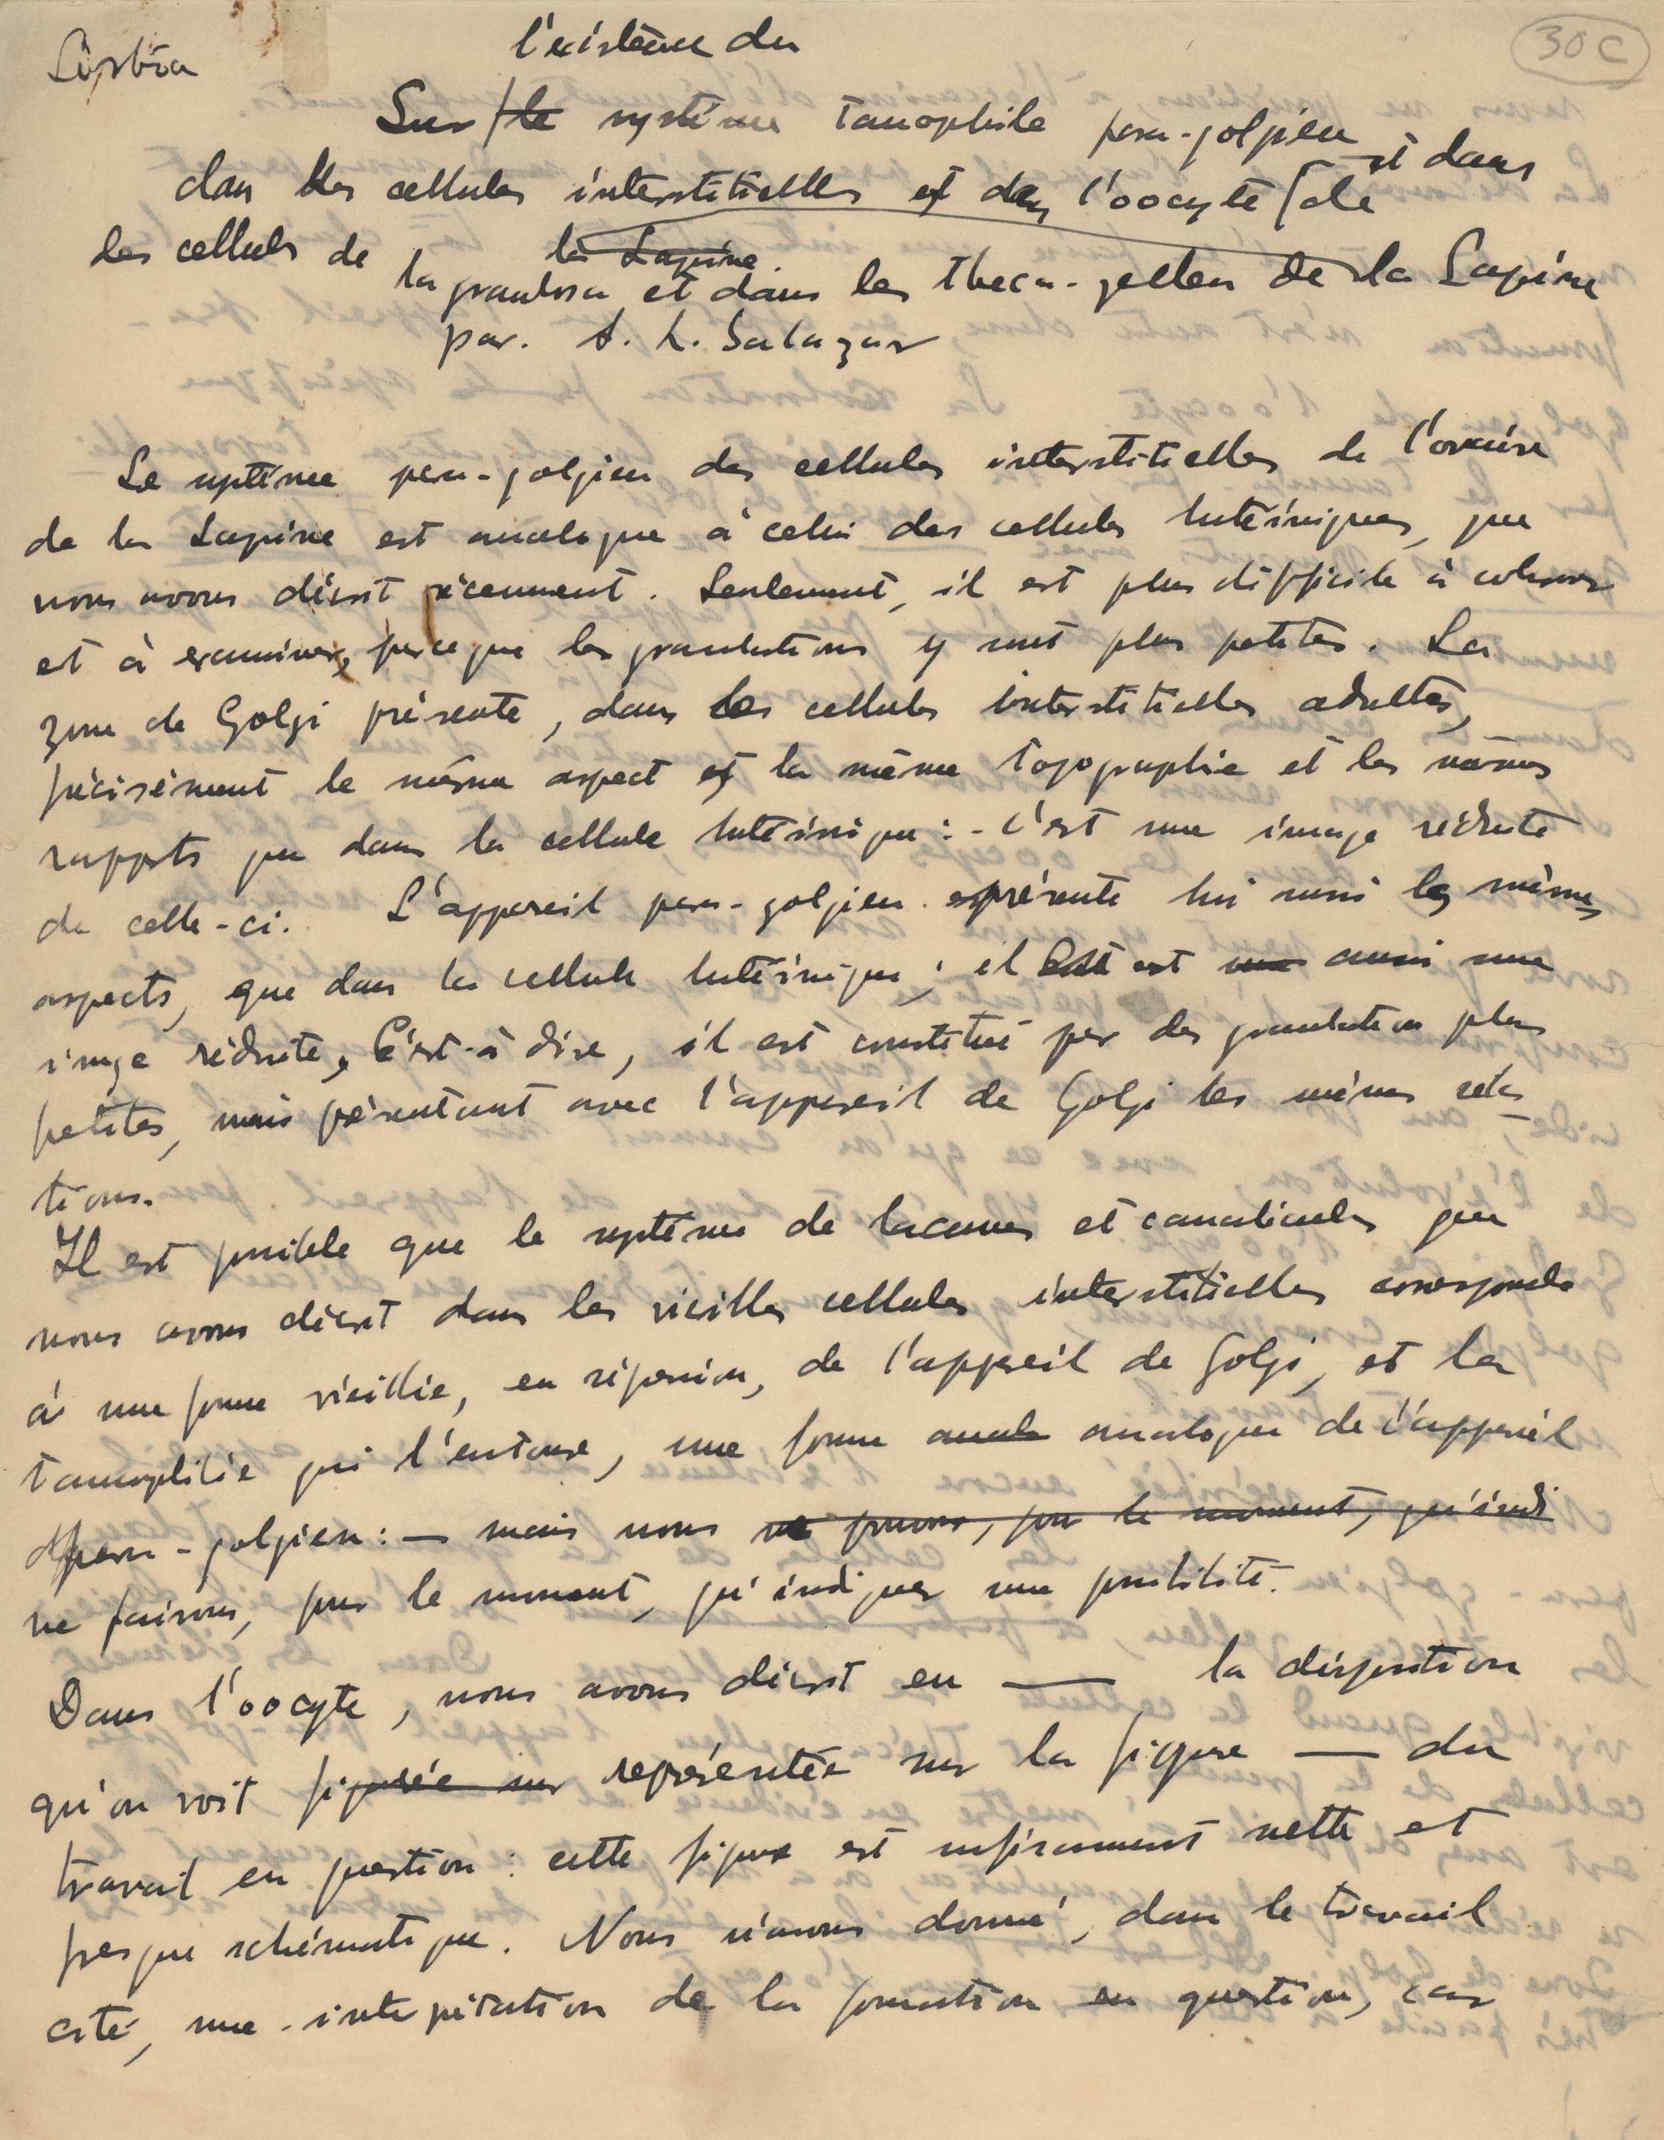 Lisbôa
30 C
l'existence du
Sur le système tanophile para-golgien
dans les cellules interstitielles et dans l'oocyte et dans
les cellules de la Lapine.
la granulosa et dans les theca-zellen de la Lapine
par. A. L. Salazar
Le système para-golgien des cellules interstitielles de l'ovaire
de la Lapine est analogue à celui des cellules lutéiniques, que
nous avons décrit récemment. Seulement, il est plus difficile à colorer
et à examiner, parce que les granulations y sont plus petites. La
zone de Golgi présente, dans les cellules interstitielles adultes,
précisément le même aspect et la même topographie et les mêmes
rapports que dans la cellule lutéinique :- c'est une image réduite
de celle-ci. L'appareil para-golgien présente lui aussi les mêmes
aspects, que dans la cellule lutéinique ; il est aussi une
image réduite, C'est-à dire, il est constitué par des granulations plus
petites, mais présentant avec l'appareil de Golgi les mêmes rela
tions.
Il est possible que le système de lacunes et canalicules que
nous avons décrit dans les vieilles cellules interstitielles corresponde
à une forme vieillie, en régression, de l'appareil de Golgi, et la
tanophilie qui l'entoure, une forme anal analogue de l'appareil
para-golgien : — mais nous ne pouvons, pour le moment, qu'indi
ne faisons, pour le moment, qu'indiquer une possibilité.
Dans l'oocyte, nous avons décrit en — la disposition
qu'on voit figurée sur représentée sur la figure — du
travail en question : cette figure est suffisamment nette et
presque schématique. Nous n'avons donné, dans le travail
cité, une interprétation de la formation en question, car